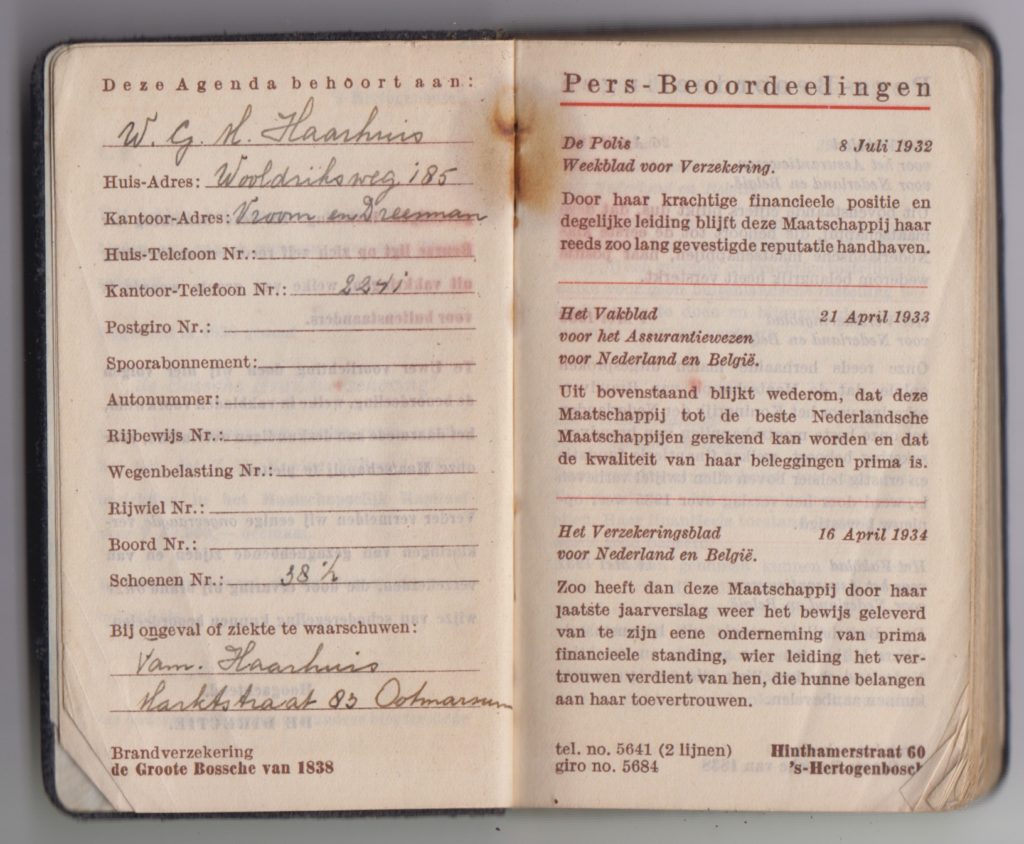 Deze Agenda behoort aan:
W. G. H. Haarhuis
Huis-Adres: Wooldriksweg 185
Kantoor-Adres: Vroom en Dreesman
Huis-Telefoon Nr.:
Kantoor-Telefoon Nr.: 2241
Postgiro Nr.:
Spoorabonnement:
Autonummer:
Rijbewijs Nr.:
Wegenbelasting Nr.:
Rijwiel Nr.:
Boord Nr.:
Schoenen Nr.: 38½
Bij ongeval of ziekte te waarschuwen:
Fam. Haarhuis
Marktstraat 83 Ootmarsum
Brandverzekering
de Groote Bossche van 1838
Pers-Beoordeelingen
De Polis 8 Juli 1932
Weekblad voor Verzekering.
Door haar krachtige financieele positie en
degelijke leiding blijft deze Maatschappij haar
reeds zoo lang gevestigde reputatie handhaven.
Het Vakblad 21 April 1933
voor het Assurantiewezen
voor Nederland en België.
Uit bovenstaand blijkt wederom, dat deze
Maatschappij tot de beste Nederlandsche
Maatschappijen gerekend kan worden en dat
de kwaliteit van haar beleggingen prima is.
Het Verzekeringsblad 16 April 1934
voor Nederland en België.
Zoo heeft dan deze Maatschappij door haar
laatste jaarverslag weer het bewijs geleverd
van te zijn eene onderneming van prima
financieele standing, wier leiding het ver-
trouwen verdient van hen, die hunne belangen
aan haar toevertrouwen.
tel. no. 5641 (2 lijnen) Hinthamerstraat 60
giro no. 5684 's-Hertogenbosch